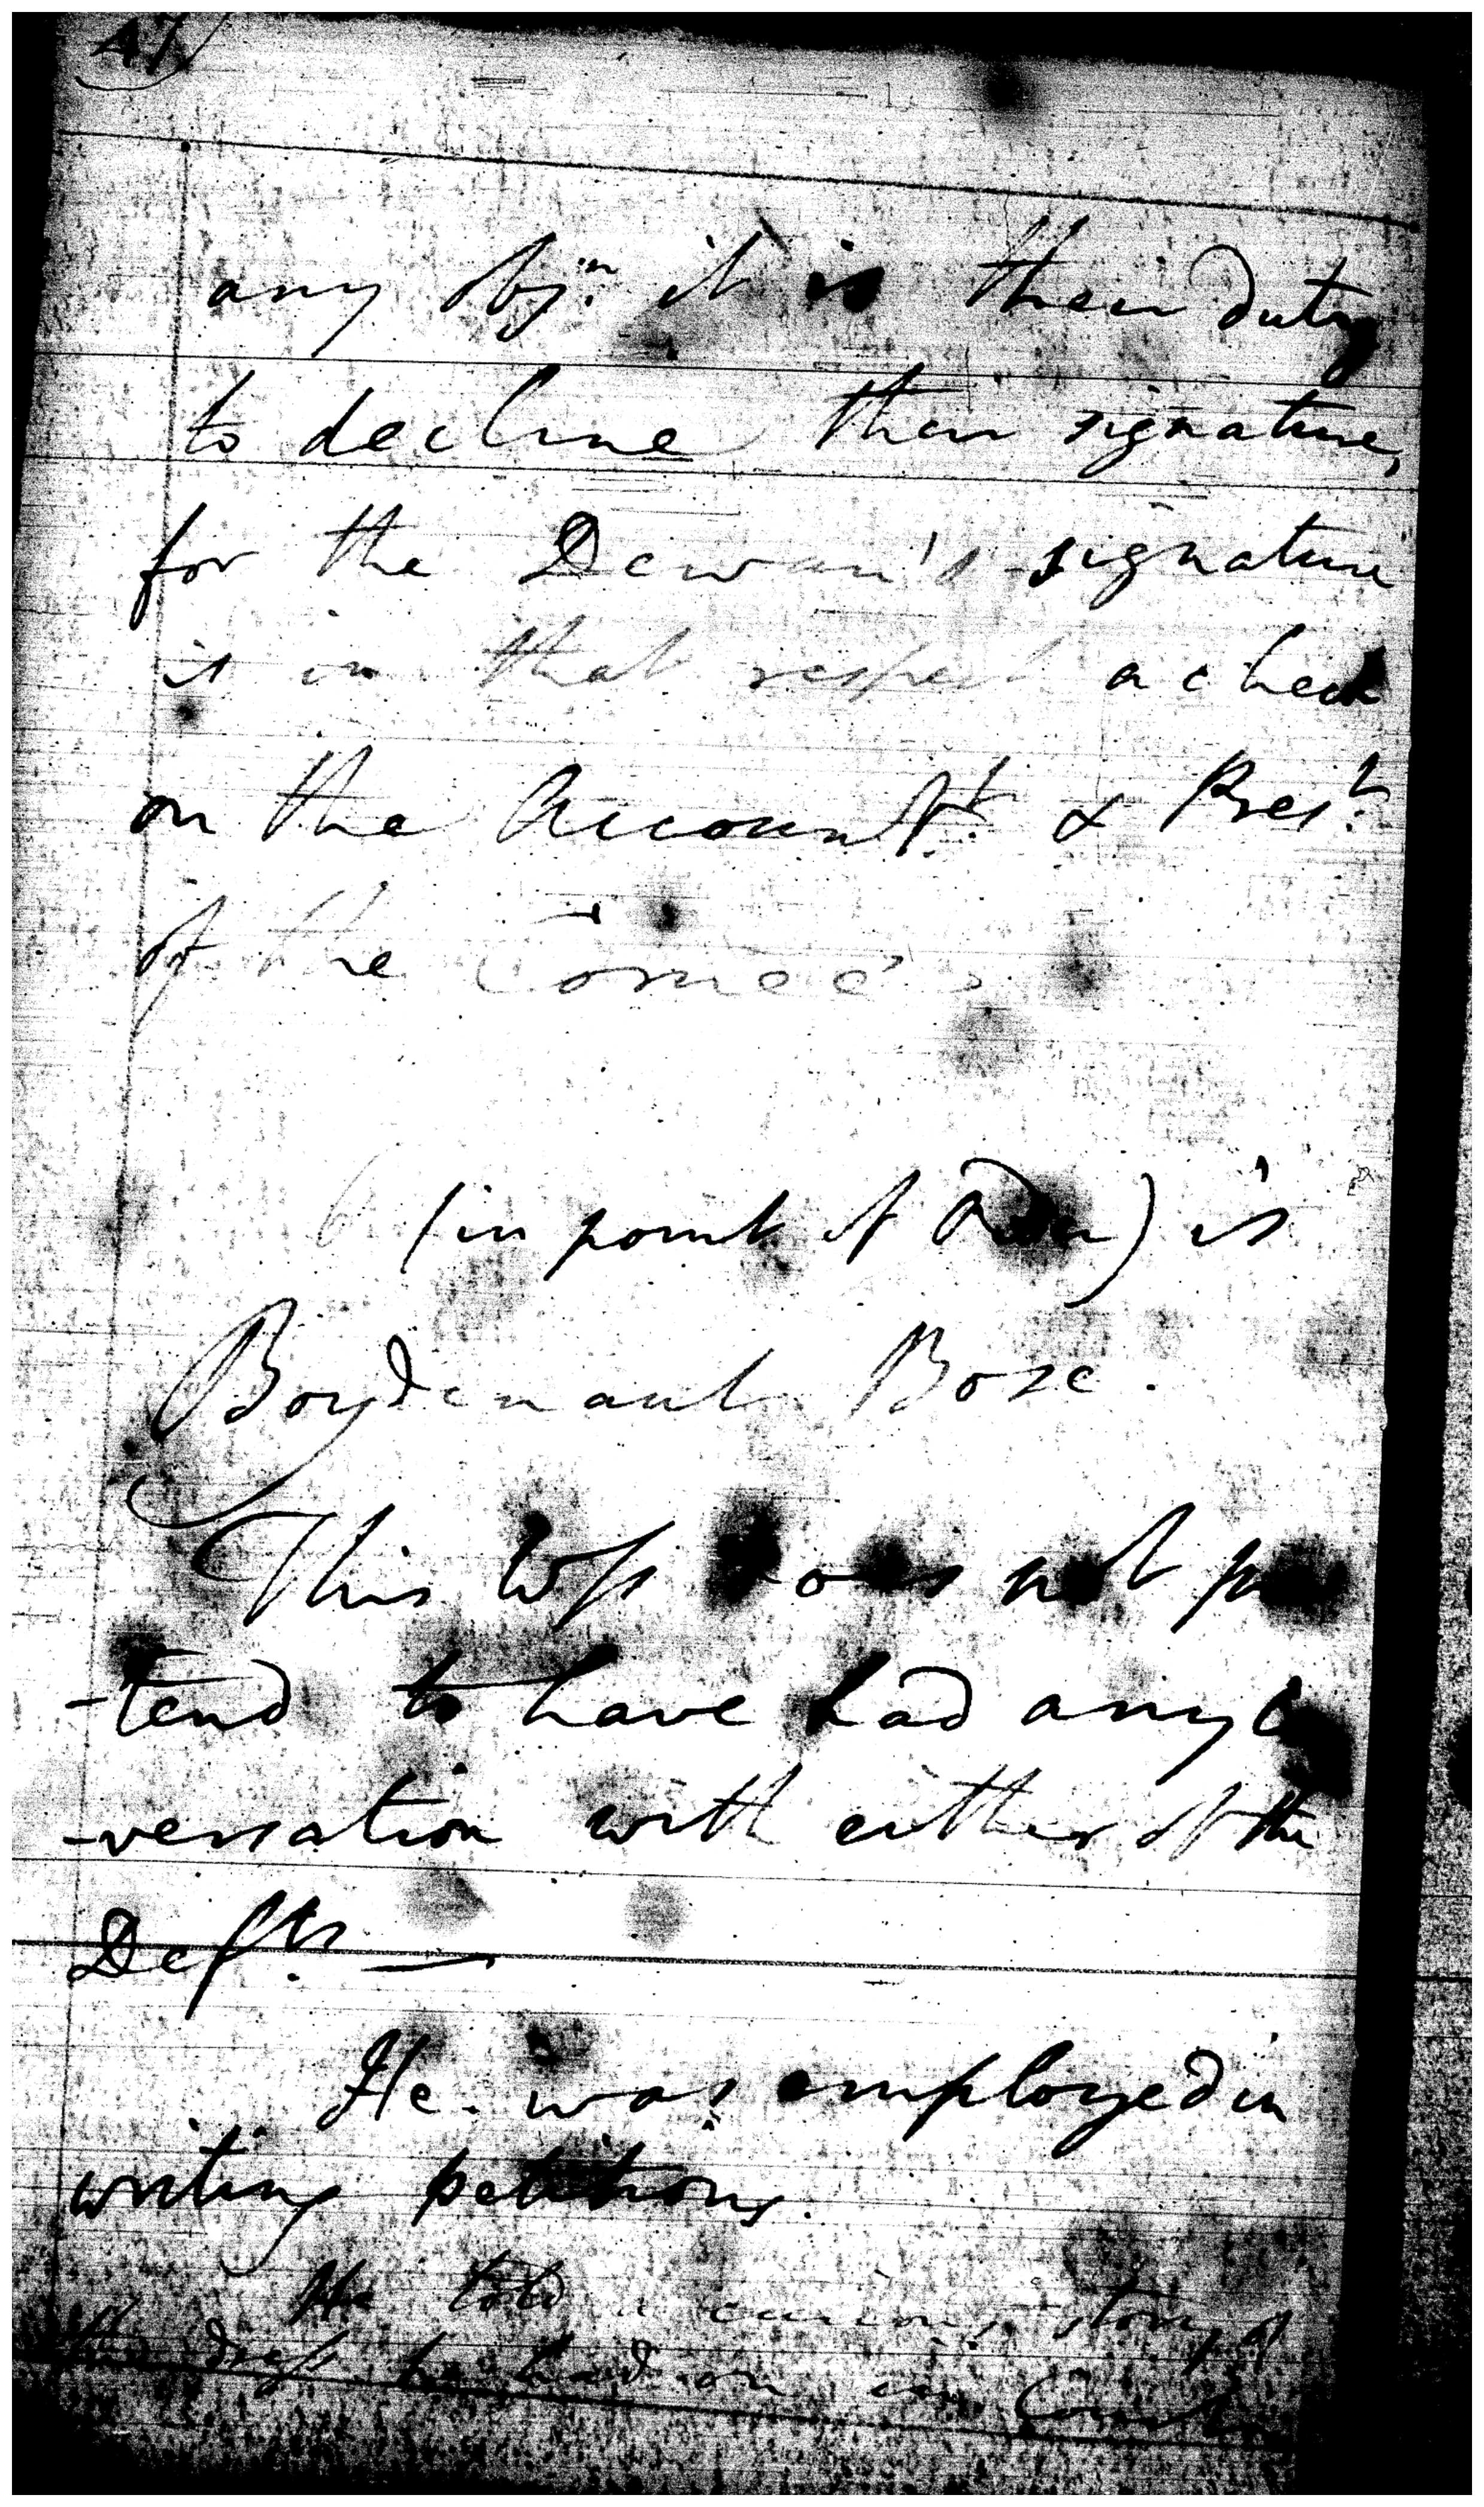 47
any obj.n it is their duty
to decline their signature,
for the Dewan's signature
is in that respect a check
on the Accountt. & Prest.
of the Comee
6 (in point of Order) is
Boydenaut Bose.
This Wss does not pre
-tend to have had any Co
-versation with either of the
Defts. —
He was employed in
writing petitions.
He told a curious story of
the dress he had on in Court